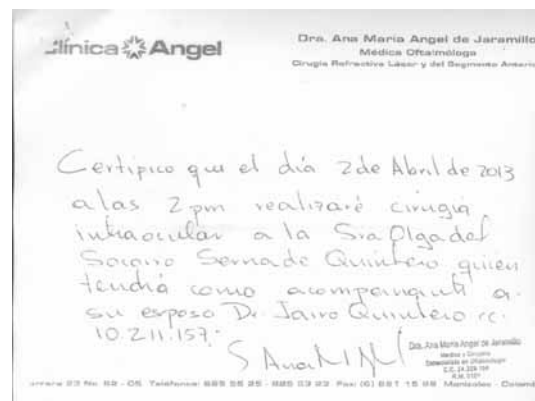 Clínica Angel
Dra. Ana Maria Angel de Jaramillo
Médica Oftalmóloga
Cirugía Refractiva Láser y del Segmento Anterio
Certifico que el día 2 de Abril de 2013
a las 2 pm realizaré cirugía
intraocular a la Sra Olga del
Socorro Serna de Quintero quien
tendrá como acompañante a
su esposo Dr Jairo Quintero cc.
10.211.157.
Dra. Ana Maria Angel de Jaramillo
Médica y Cirujana
Especialista en Oftalmología
arrera 23 No. 62 - 05 Teléfonos: Fax: (6) Manizales - Colomb